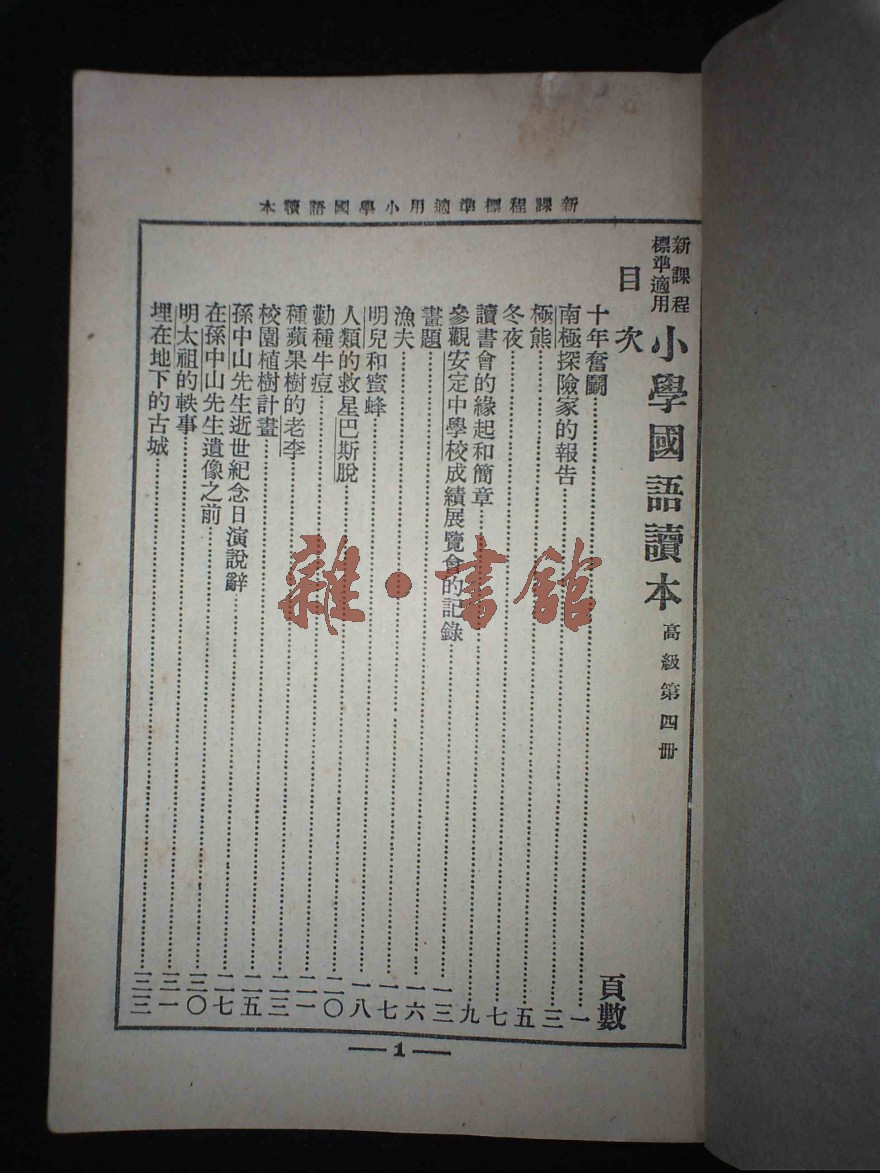 新課程標準適用小學國語讀本
新課程標準適用 小學國語讀本 高級第四冊
目次 頁數
十年奮鬭……一
南極探險家的報告……三
極熊……五
冬夜……七
讀書會的緣起和簡章……九
參觀安定中學校成績展覽會的記錄……一三
畫題……一六
漁夫……一七
明兒和蜜蜂……一八
人類的救星巴斯脫……二〇
勸種牛痘……二一
種蘋果樹的老李……二三
校園植樹計畫……二五
孫中山先生逝世紀念日演說辭……二七
在孫中山先生遺像之前……三〇
明太祖的軼事……三一
埋在地下的古城……三三
— 1 —
雜·書館